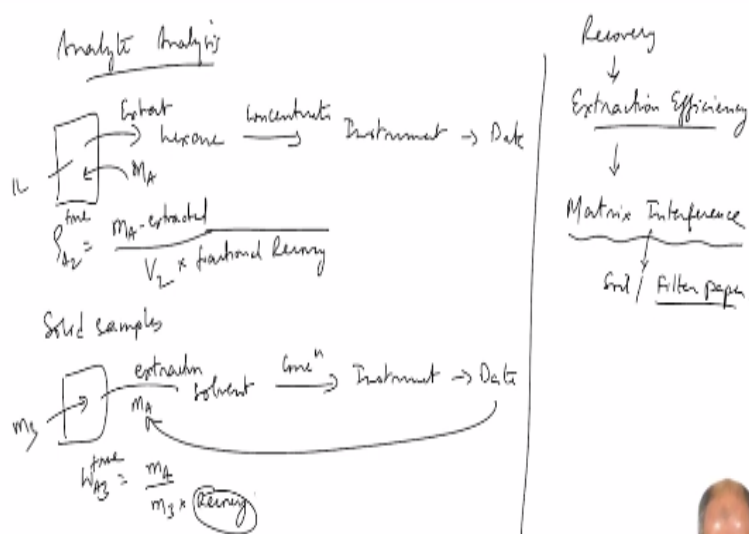 Analyte Analysis
Extract
hexane
Concentrate
Instrument → Data
1L
m_A
ρ_A2^true = m_A-extracted / V_2 × fractional Recovery
Solid samples
m_3
extraction
solvent
Conc^n
Instrument → Data
m_A
W_A3^true = m_A / m_3 × Recovery
Recovery
↓
Extraction Efficiency
↓
Matrix Interference
Soil / Filter paper